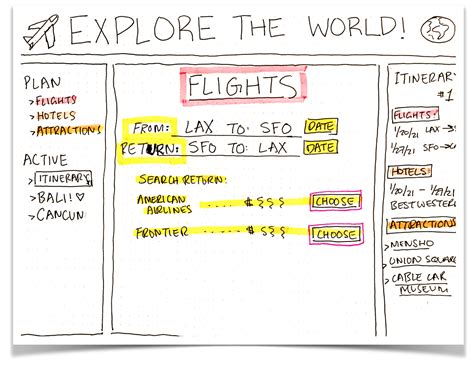 EXPLORE THE WORLD!
PLAN
>FLIGHTS
>HOTELS
>ATTRACTIONS
ACTIVE
>ITINERARY
>BALI!♡
>CANCUN
FLIGHTS
FROM: LAX TO: SFO DATE
RETURN: SFO TO: LAX DATE
SEARCH RETURN:
AMERICAN AIRLINES ..... $ CHOOSE
FRONTIER ..... $ CHOOSE
ITINERAR
#1
FLIGHTS:
1/20/21 LAX →
1/27/21 SFO →
HOTELS
1/20/21 -
BEST WESTER
ATTRACTIONS
>MENSHO
>UNION SQUAR
>CABLE CAR
MUSEUM